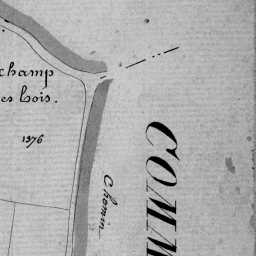 champ
es bois.
1376
Chemin
COMM